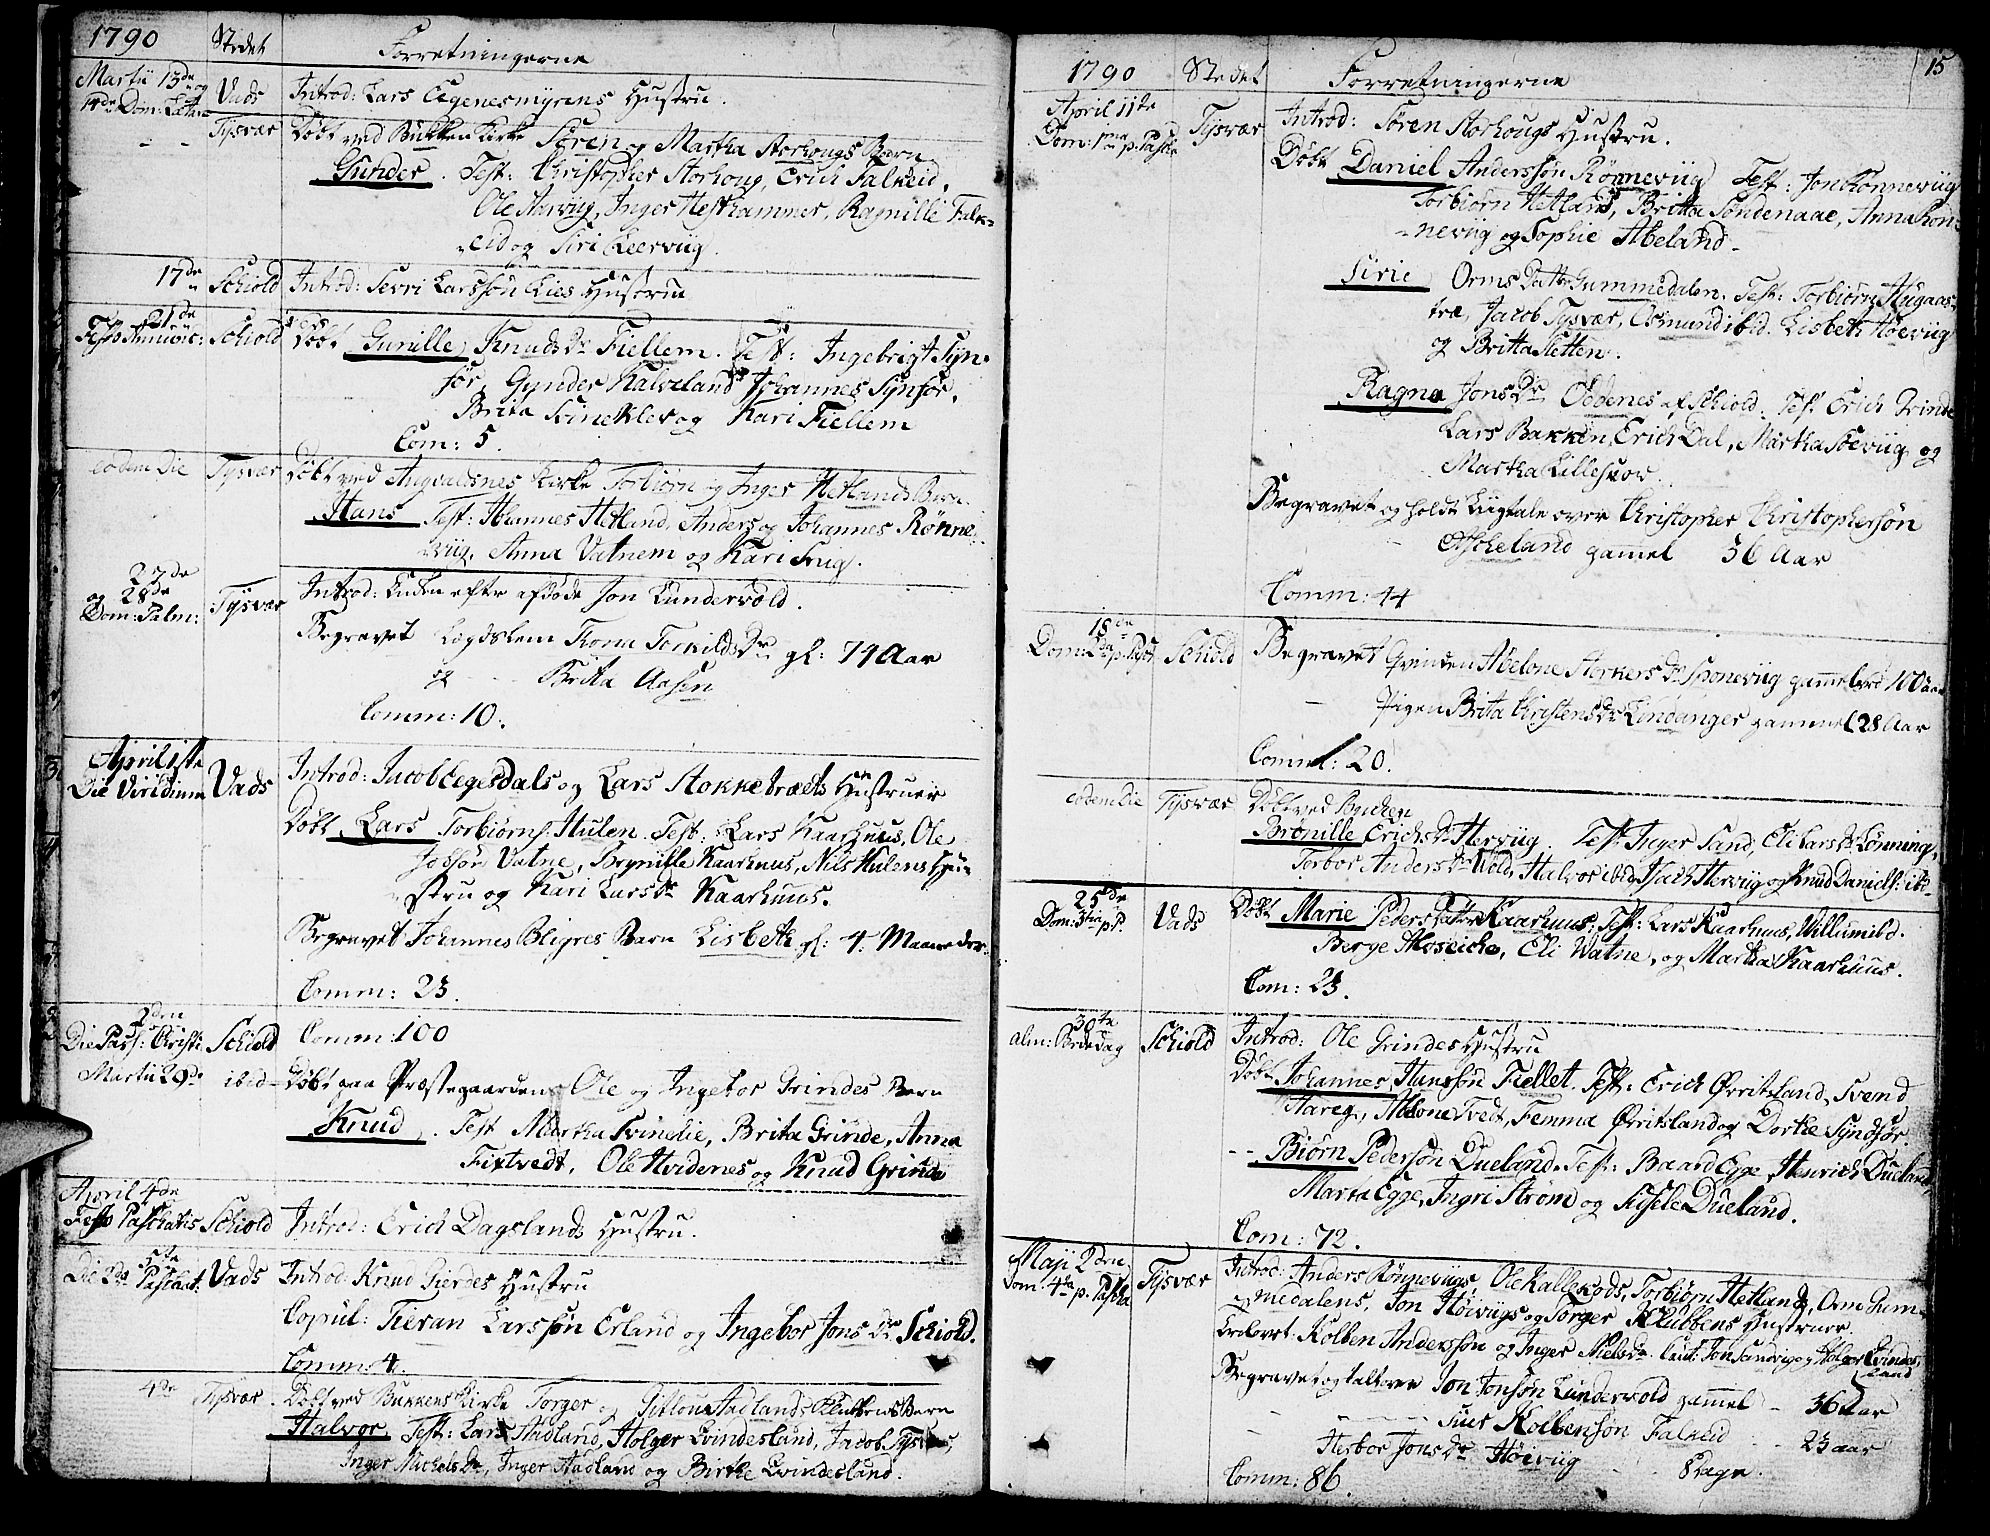 1790 Stedet Forretningerne
Martii 13de og Vads Introd: Lars Aegenesmyrens Hustru.
14de Dom: Lætare
- - Tysvær Døbt ved Bukken Kirke Søren og Martha Storhougs Barn
Gunder. Test: Christopher Storhoug, Erich Falkeid,
Ole Aarviig, Inger Hesthammer, Ragnille Falk-
eid og Siri Leerviig.
17de Schiold Introd: Sevri Larssøn Lies Hustrue
21de
Festo Annunc: Schiold Døbt Gunille Knuds Dr Fiellem. Test: Ingebrigt Syn-
før, Gynder Kalveland Johannes Synfør,
Brita Svinekler og Kari Fiellem
Com: 5.
eodem Die Tysvær Døbt ved Augvaldsnes Kirke Torbiørn og Inger Hetlands Barn
Hans Test: Johannes Hetland, Anders og Johannes Rønne-
viig, Anna Vatnem og Kari Friig.
27de
og 28de
Dom: Palm: Tysvær Introd: Enken efter afdøde Jon Lundervold.
Begravet Lægdslem Thora Torkilds Dr gl: 74 Aar
og - - Britha Aasen
Comm: 10.
April 1ste
Die Viridium Vads Introd: Jacob Aegesdals og Lars Stokketræets Hustruer
Døbt Lars Torbiørns: Hulen. Test: Lars Kaarhuus, Ole
Jobsøn Vatne, Brynille Kaarhuus, Nils Hulens Hu-
stru og Kari Lars Dr Kaarhuus.
Begravet Johannes Bligres Barn Lisbeth gl: 4 Maaneder.
Comm: 23.
2den
Die Pass: Christi Schiold Comm: 100
Martii 29de ibid Døbt paa Præstegaarden Ole og Ingebor Grindes Barn
Knud. Test Martha Svindie, Brita Grinde, Anna
Fixtvedt, Ole Hvidenes og Knud Grinde
April 4de
Festo Paschatis Schiold Introd: Erich Dagslands Hustru.
5te
Die 2da Paschat: Vads Introd: Knud Gierdes Hustru
Copul: Tieran Larssøn Erland og Ingebor Jons Dr Schiold.
Comm: 4.
4de Tysvær Døbt ved Bukkens Kirke Torger og Hadlands Barn
Halvor Test: Lars Hadland, Holger Qvindesland, Jacob Tysvær,
Inger Michels Dr, Inger Hadland og Birthe Qvindesland.
15
1790 Stedet Forretningerne
April 11te
Dom: 1ma p. Pasch Tysvær Introd: Søren Storhougs Hustru.
Døbt Daniel Anderssøn Rønneviig Test: Jon Rønneviig
Torbiørn Hetland, Britta Søndenaae, Anna Røn-
neviig og Sophie Abeland -
Sirie Orms Datter Gummedalen. Test: Torbiørn Hygaas-
træ, Jacob Tysvær, Osmund ibid. Lisbeth Høeviig
og Britta Sletten.
Ragna Jons Dr Oddenes af Schiold. Test Erich Qvinde
Lars Bakken Erich Dal, Martha Soeviig og
Martha Lilleskor.
Begravet og holdt Liigtale over Christopher Christophersøn
Escheland gamel 36 Aar
Comm: 44
18de
Dom: 2da p. Pasc Schiold Begravet Qvinden Abelone Storkers Dr Sponeviig gammel ved 100 aar
- Pigen Brita Christens Dr Lindanger gammel 28 Aar
Comm: 20.
eodem Die Tysvær Døbt ved Bucken
Bronille Erichs Dr Herviig. Test Inger Sand, Eli Lars Dr Lønning,
Torbor Anders Dr Wold, Halvor ibid, Isach Herviig og Knud Daniels: ibd-
25de
Dom: 3tia p. P. Vads Døbt Marie Peders Datter Kaarhuus: Test: Lars Kaarhuus, Willum ibd.
Berge Moseiche, Eli Watne, og Martha Kaarhuus.
Com: 23.
30te
alm: Bededag Schiold Introd: Ole Grindes Hustru
Døbt Johannes Hanssøn Fiellet. Test: Erich Øvritsland, Svend
Hareg, Ablone Tvedt, Femma Øvritsland og Dorthe Syndfør.
- - Biørn Pedersøn Dueland. Test: Baard Egge, Henrich Dueland,
Marta Egge, Ingri Strøm og Sisele Dueland.
Com: 72.
Maji 2den
Dom: 4ta p. Pascha Tysvær Introd: Anders Rønneviigs, Ole Kallekods, Torbiørn Hetlands, Orm Gum-
medalens, Jon Høiviigs og Torger Klubbens Hustruer.
Trolovet: Kolben Anderssøn og Inger Niels Dr. Caut: Jon Sandvig og Holger Qvindes-
land
Begravet og talt over Jon Jonsøn Lundervold gammel - 36 Aar
- - - - - Siur Kolbensøn Falkeid - - 23 aar
Herbor Jons Dr Høiviig - - 8 dage.
Comm: 86.